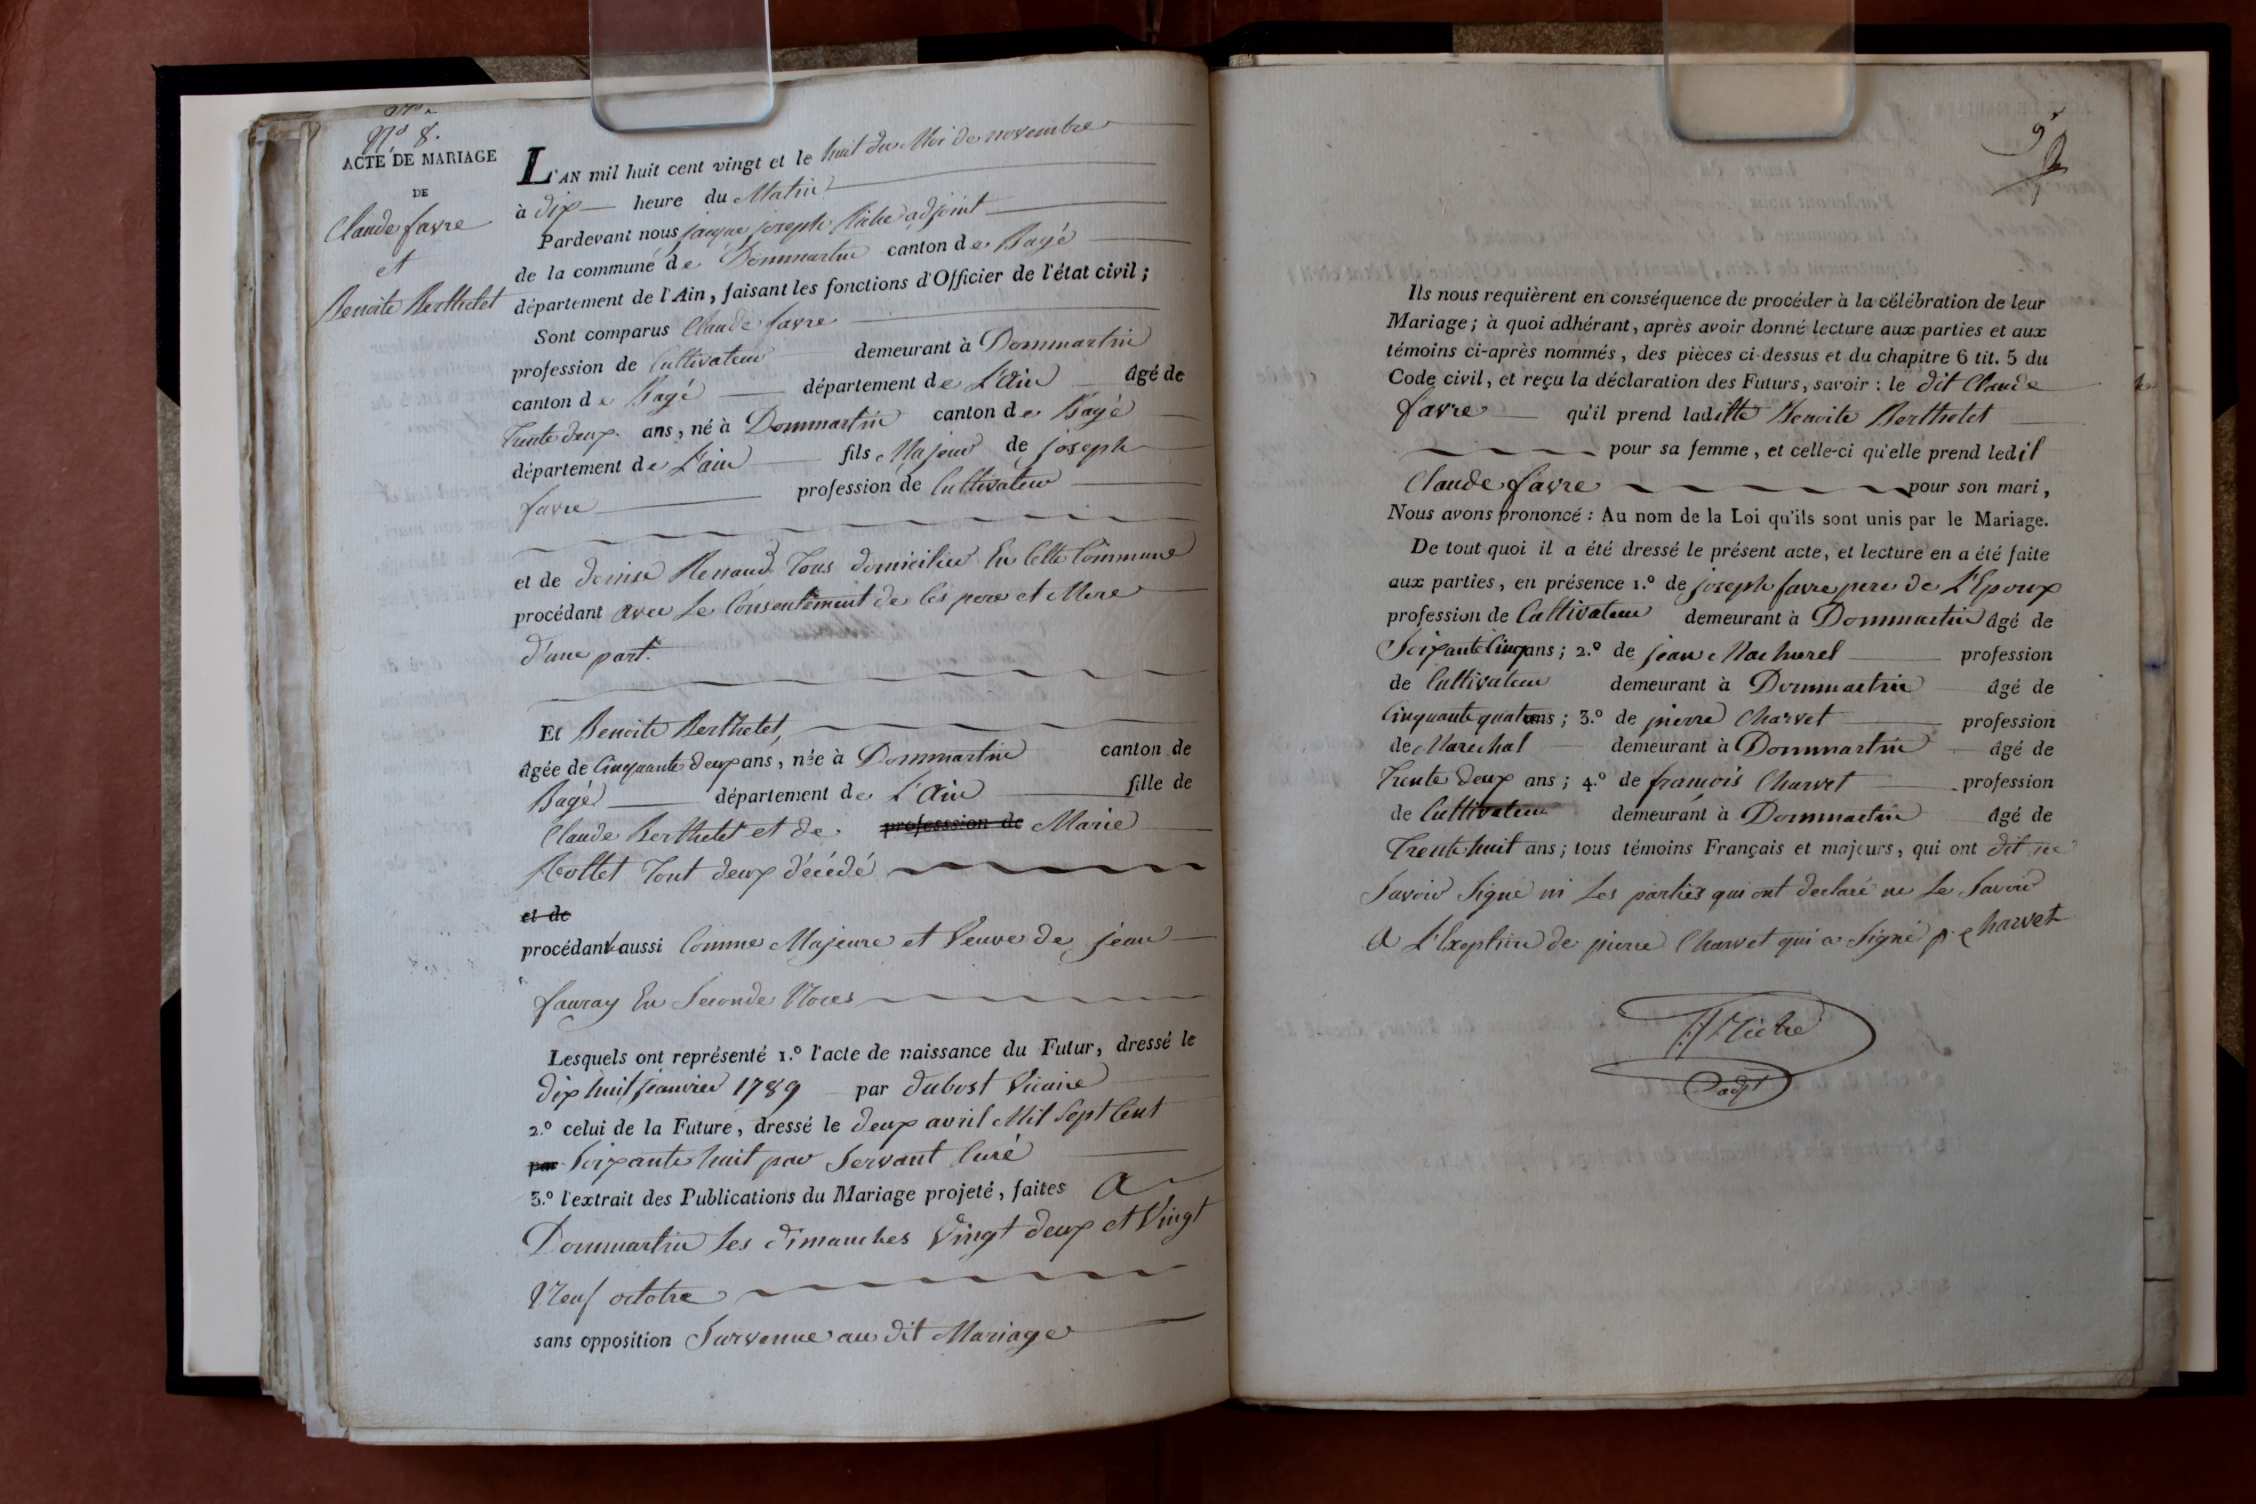 Nº 8.
ACTE DE MARIAGE
DE
Claude favre
et
Benoite Berthelet
L'AN mil huit cent vingt et le huit du Moi de novembre
à dix heure du Matin
Pardevant nous jacque joseph adjoint
de la commune de Dommartin canton de Bagé
département de l'Ain, faisant les fonctions d'Officier de l'état civil;
Sont comparus Claude favre
profession de Cultivateur demeurant à Dommartin
canton de Bagé département de L'Ain âgé de
Trente deux ans, né à Dommartin canton de Bagé
département de L'ain fils Majeur de joseph
favre profession de Cultivateur
et de denise Renaud Tous domicilier En Cette Commune
procédant avec Le Consentement de Ces pere et Mere
d'une part.
Et Benoite Berthelet,
âgée de Cinquante deux ans, née à Dommartin canton de
Bagé département de L'Ain fille de
Claude Berthelet et de profession de Marie
Rollet Tout deux décédé
et de
procédant aussi Comme Majeure et Veuve de jean
fauray En Seconde Noces
Lesquels ont représenté 1.º l'acte de naissance du Futur, dressé le
dix huit janvier 1789 par dubost Vicaire
2.º celui de la Future, dressé le deux avril Mil Sept Cent
par Soixante huit par Servant Curé
3.º l'extrait des Publications du Mariage projeté, faites A
Dommartin Les dimanches Vingt deux et Vingt
Neuf octobre
sans opposition Survenue au dit Mariage
9
Ils nous requièrent en conséquence de procéder à la célébration de leur
Mariage; à quoi adhérant, après avoir donné lecture aux parties et aux
témoins ci-après nommés, des pièces ci-dessus et du chapitre 6 tit. 5 du
Code civil, et reçu la déclaration des Futurs, savoir: le dit Claude
favre qu'il prend laditte Benoite Berthelet
pour sa femme, et celle-ci qu'elle prend ledit
Claude favre pour son mari,
Nous avons prononcé: Au nom de la Loi qu'ils sont unis par le Mariage.
De tout quoi il a été dressé le présent acte, et lecture en a été faite
aux parties, en présence 1.º de joseph favre pere de L'Epoux
profession de Cultivateur demeurant à Dommartin âgé de
Soixante Cinq ans; 2.º de jean Machurel profession
de Cultivateur demeurant à Dommartin âgé de
Cinquante quatre ans; 3.º de pierre Charvet profession
de Marechal demeurant à Dommartin âgé de
Trente deux ans; 4.º de françois Charvet profession
de Cultivateur demeurant à Dommartin âgé de
Trente huit ans; tous témoins Français et majeurs, qui ont dit ne
Savoir Signé ni Les parties qui ont declaré ne Le Savoir
A L'Exeption de pierre Charvet qui a Signé p. charvet
adjt